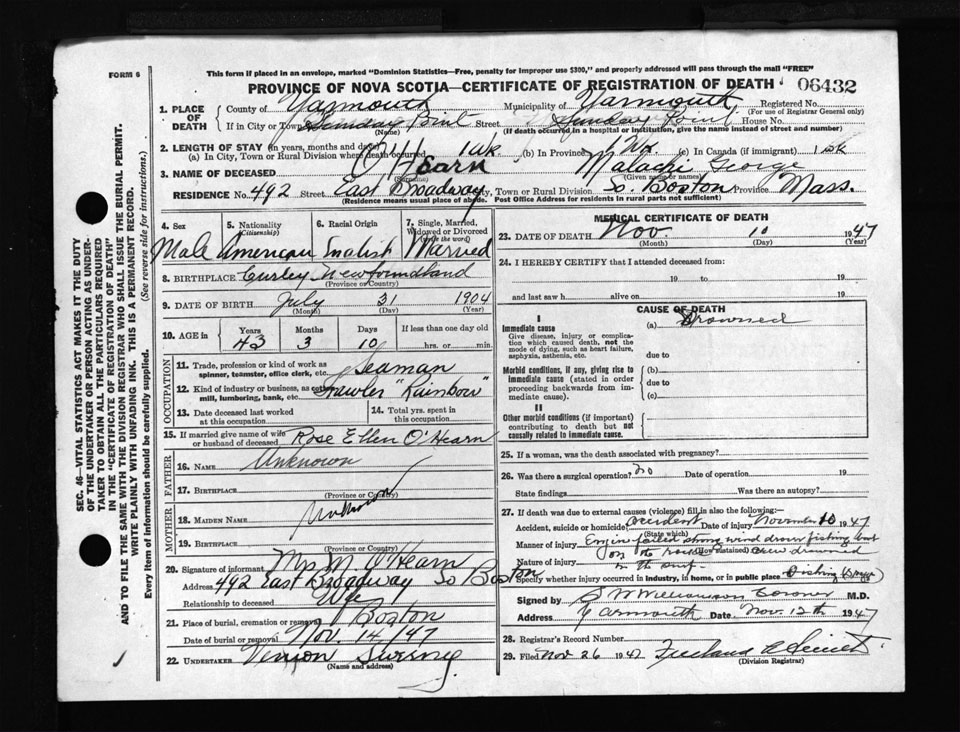 FORM 6
This form if placed in an envelope, marked "Dominion Statistics—Free, penalty for improper use $300," and properly addressed will pass through the mail "FREE"
PROVINCE OF NOVA SCOTIA—CERTIFICATE OF REGISTRATION OF DEATH 06432
1. PLACE OF DEATH County of Yarmouth Municipality of Yarmouth Registered No.
(For use of Registrar General only)
If in City or Town Sunday Point Street Sunday Point House No.
(Name) (If death occurred in a hospital or institution, give the name instead of street and number)
2. LENGTH OF STAY (in years, months and days)
(a) In City, Town or Rural Division where death occurred 1 wk. (b) In Province 1 Wk. (c) In Canada (if immigrant) 1 wk
3. NAME OF DECEASED O'Hearn Malachi George
(Surname) (Given name or names)
RESIDENCE No. 492 Street East Broadway City, Town or Rural Division So. Boston Province Mass.
(Residence means usual place of abode. Post Office Address for residents in rural parts not sufficient)
4. Sex 5. Nationality (Citizenship) 6. Racial Origin 7. Single, Married, Widowed or Divorced (write the word)
Male American English Married
8. BIRTHPLACE Curley Newfoundland
(Province or Country)
9. DATE OF BIRTH July 31 1904
(Month) (Day) (Year)
10. AGE in Years Months Days If less than one day old
43 3 10 hrs. or min.
OCCUPATION
11. Trade, profession or kind of work as spinner, teamster, office clerk, etc. Seaman
12. Kind of industry or business, as cotton mill, lumbering, bank, etc. Trawler "Rainbow"
13. Date deceased last worked at this occupation
14. Total yrs. spent in this occupation
15. If married give name of wife or husband of deceased Rose Ellen O'Hearn
FATHER
16. NAME Unknown
17. BIRTHPLACE
(Province or Country)
MOTHER
18. MAIDEN NAME Unknown
19. BIRTHPLACE
(Province or Country)
20. Signature of informant Mrs M. O'Hearn
Address 492 East Broadway So Boston
Relationship to deceased Wife
21. Place of burial, cremation or removal Boston
Date of burial or removal Nov. 14/47
22. UNDERTAKER Vernon Sweeny
(Name and address)
MEDICAL CERTIFICATE OF DEATH
23. DATE OF DEATH Nov. 10 1947
(Month) (Day) (Year)
24. I HEREBY CERTIFY that I attended deceased from:
19 to 19
and last saw h alive on 19
CAUSE OF DEATH
I
Immediate cause (a) Drowned
Give disease, injury or complication which caused death, not the mode of dying, such as heart failure, asphyxia, asthenia, etc.
due to
Morbid conditions, if any, giving rise to immediate cause (stated in order proceeding backwards from immediate cause).
(b)
due to
(c)
II
Other morbid conditions (if important) contributing to death but not causally related to immediate cause.
25. If a woman, was the death associated with pregnancy?
26. Was there a surgical operation? No Date of operation 19
State findings Was there an autopsy?
27. If death was due to external causes (violence) fill in also the following:
Accident, suicide or homicide? Accident Date of injury November 10 1947
(State which)
Manner of injury Engine failed strong wind drove fishing boat
on the rocks (How sustained) crew drowned
Nature of injury in the surf.
Specify whether injury occurred in industry, in home, or in public place
Signed by S W Williamson Coroner M.D.
Address Yarmouth Date Nov. 12th 1947
28. Registrar's Record Number
29. Filed Nov 26 1947
(Division Registrar)
SEC. 46—VITAL STATISTICS ACT MAKES IT THE DUTY
OF THE UNDERTAKER OR PERSON ACTING AS UNDERTAKER
TO OBTAIN ALL THE PARTICULARS REQUIRED
IN THE "CERTIFICATE OF REGISTRATION OF DEATH"
AND TO FILE THE SAME WITH THE DIVISION REGISTRAR WHO SHALL ISSUE THE BURIAL PERMIT.
WRITE PLAINLY WITH UNFADING INK. THIS IS A PERMANENT RECORD.
Every item of information should be carefully supplied. (See reverse side for instructions.)